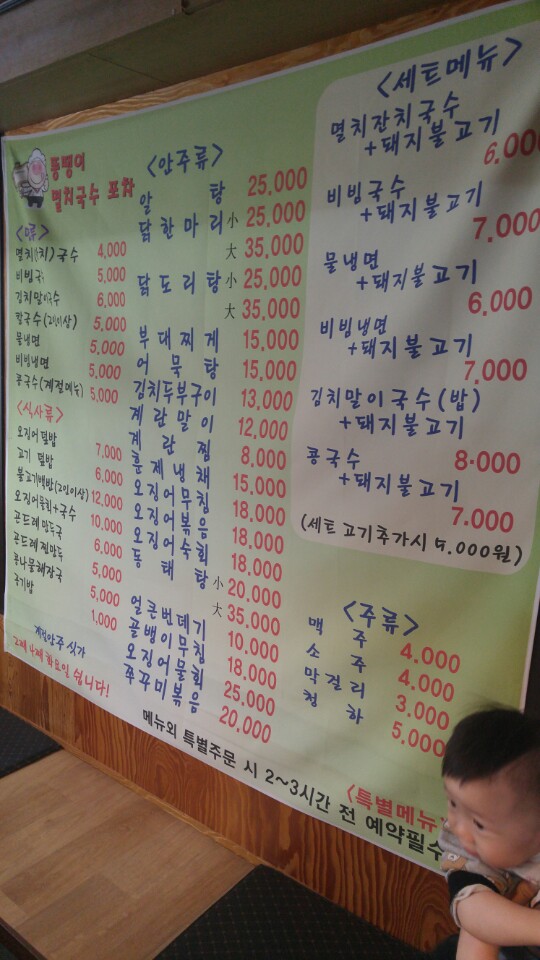 멸치국수 포차
<면류>
멸치(잔치)국수 4,000
비빔국수 5,000
김치말이국수 6,000
칼국수(2인이상) 5,000
물냉면 5,000
비빔냉면 5,000
콩국수(계절메뉴) 5,000
<식사류>
오징어 덮밥 7,000
고기 덮밥 6,000
불고기백반(2인이상) 12,000
오징어물회+국수 10,000
곤드레 만두국 6,000
곤드레 찐만두 5,000
콩나물해장국 5,000
공기밥 1,000
계절안주 싯가
2째 4째 화요일 쉽니다!
<안주류>
알탕 25,000
닭한마리 小 25,000
大 35,000
닭도리탕 小 25,000
大 35,000
부대찌게 15,000
어묵탕 15,000
김치두부구이 13,000
계란말이 12,000
계란찜 8,000
훈제냉채 15,000
오징어무침 18,000
오징어볶음 18,000
오징어숙회 18,000
동태탕 小 20,000
大 35,000
얼큰번데기 10,000
골뱅이무침 18,000
오징어물회 25,000
쭈꾸미볶음 20,000
<세트메뉴>
멸치잔치국수
+돼지불고기 6,000
비빔국수
+돼지불고기 7,000
물냉면
+돼지불고기 6,000
비빔냉면
+돼지불고기 7,000
김치말이국수(밥)
+돼지불고기 8.000
콩국수
+돼지불고기 7.000
(세트 고기추가시 5.000원)
<주류>
맥주 4.000
소주 4.000
막걸리 3.000
청하 5.000
<특별메뉴
메뉴외 특별주문 시 2~3시간 전 예약필수